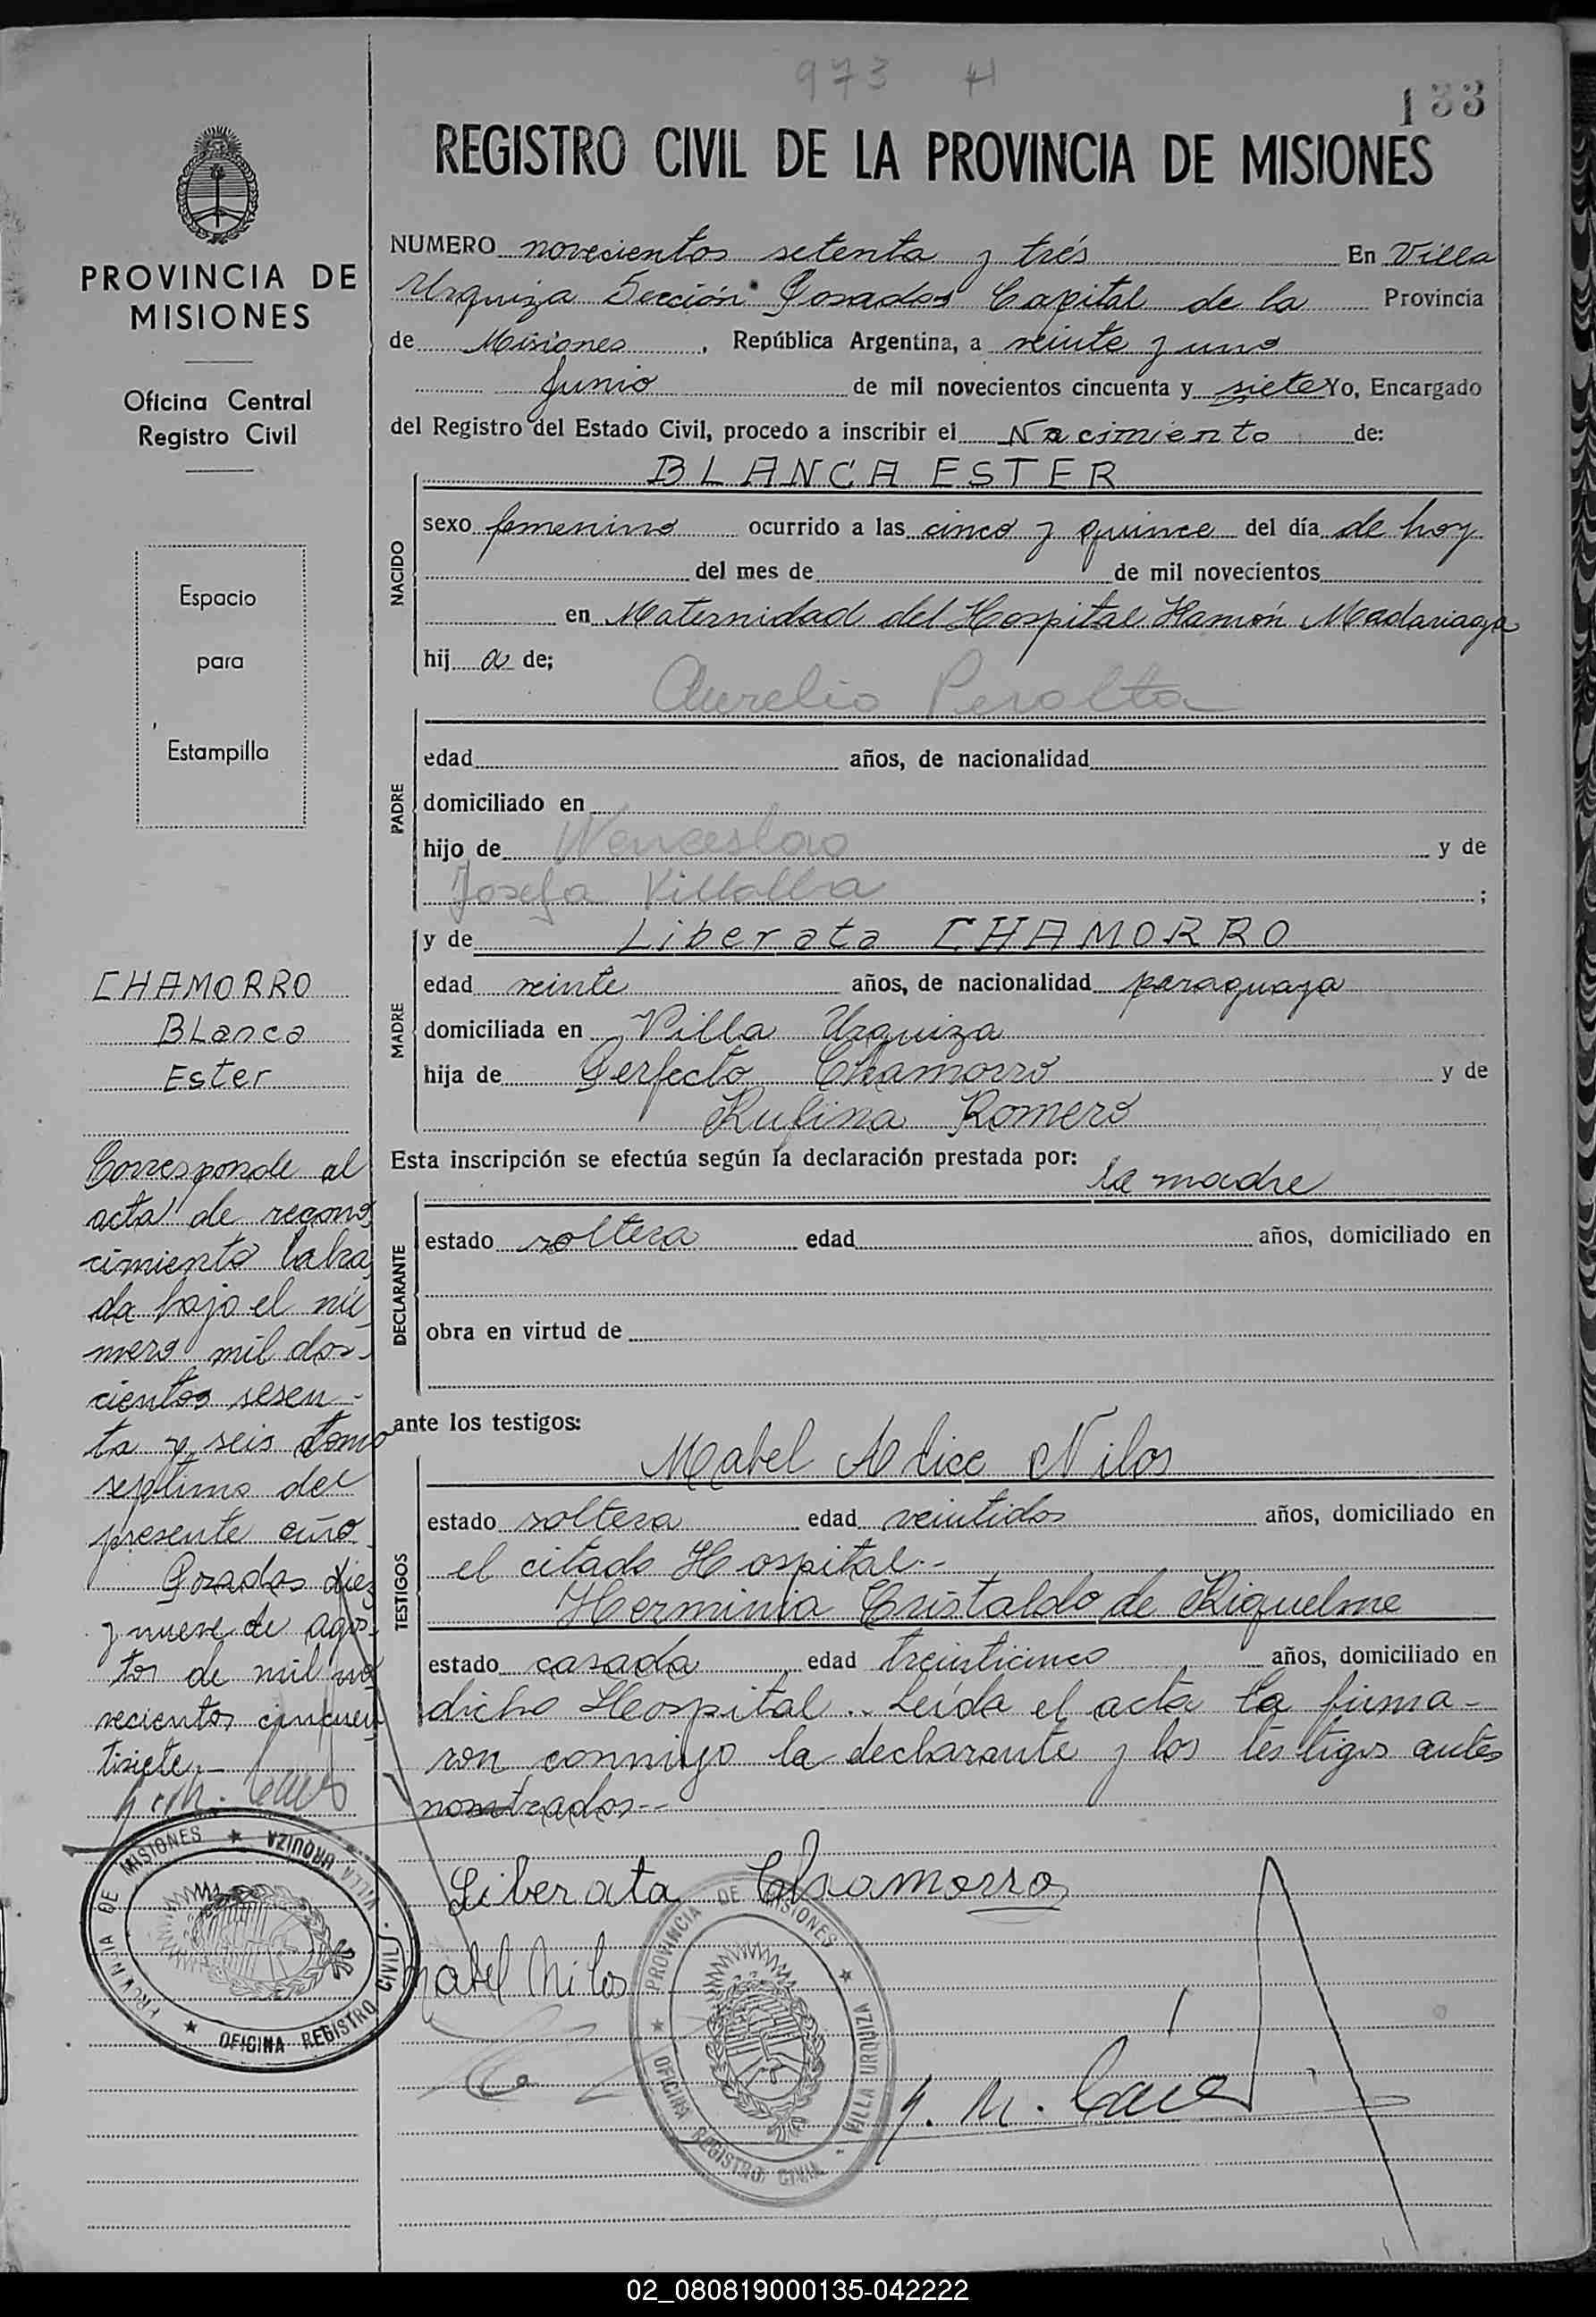 973 H
133
REGISTRO CIVIL DE LA PROVINCIA DE MISIONES
PROVINCIA DE
MISIONES
Oficina Central
Registro Civil
Espacio
para
Estampilla
CHAMORRO
Blanca
Ester
Corresponde al
acta de recono
cimiento labra
da bajo el nú
mero mil dos-
cientos sesen-
ta y seis tomo
septimo del
presente año.
Posadas diez
y nueve de agos-
tos de mil no
vecientos cincuen
tisiete.-
NUMERO novecientos setenta y trés En Villa
Urquiza Sección Posadas Capital de la Provincia
de Misiones, República Argentina, a veinte y uno
Junio de mil novecientos cincuenta y siete Yo, Encargado
del Registro del Estado Civil, procedo a inscribir el Nacimiento de:
BLANCA ESTER
NACIDO
sexo femenino ocurrido a las cinco y quince del día de hoy
del mes de de mil novecientos
en Maternidad del Hospital Ramón Madariaga
hij a de;
Aurelio Peralta
PADRE
edad años, de nacionalidad
domiciliado en
hijo de Wenceslao y de
Josefa Villalba ;
MADRE
y de Liberata CHAMORRO
edad veinte años, de nacionalidad paraguaya
domiciliada en Villa Urquiza
hija de Perfecto Chamorro y de
Rufina Romero
Esta inscripción se efectúa según la declaración prestada por:
la madre
DECLARANTE
estado soltera edad años, domiciliado en
obra en virtud de
ante los testigos:
Mabel Alice Nilos
TESTIGOS
estado soltera edad veintidos años, domiciliado en
el citado Hospital.-
Herminia Cristaldo de Riquelme
estado casada edad treinticinco años, domiciliado en
dicho Hospital.. Leída el acta la firma-
ron conmigo la declarante y los testigos antes
nombrados--
Liberata Chamorro
Mabel Nilos
PROVINCIA DE MISIONES ★ VILLA URQUIZA
★ OFICINA REGISTRO CIVIL
PROVINCIA DE MISIONES ★ VILLA URQUIZA
★ OFICINA REGISTRO CIVIL
02_080819000135-042222